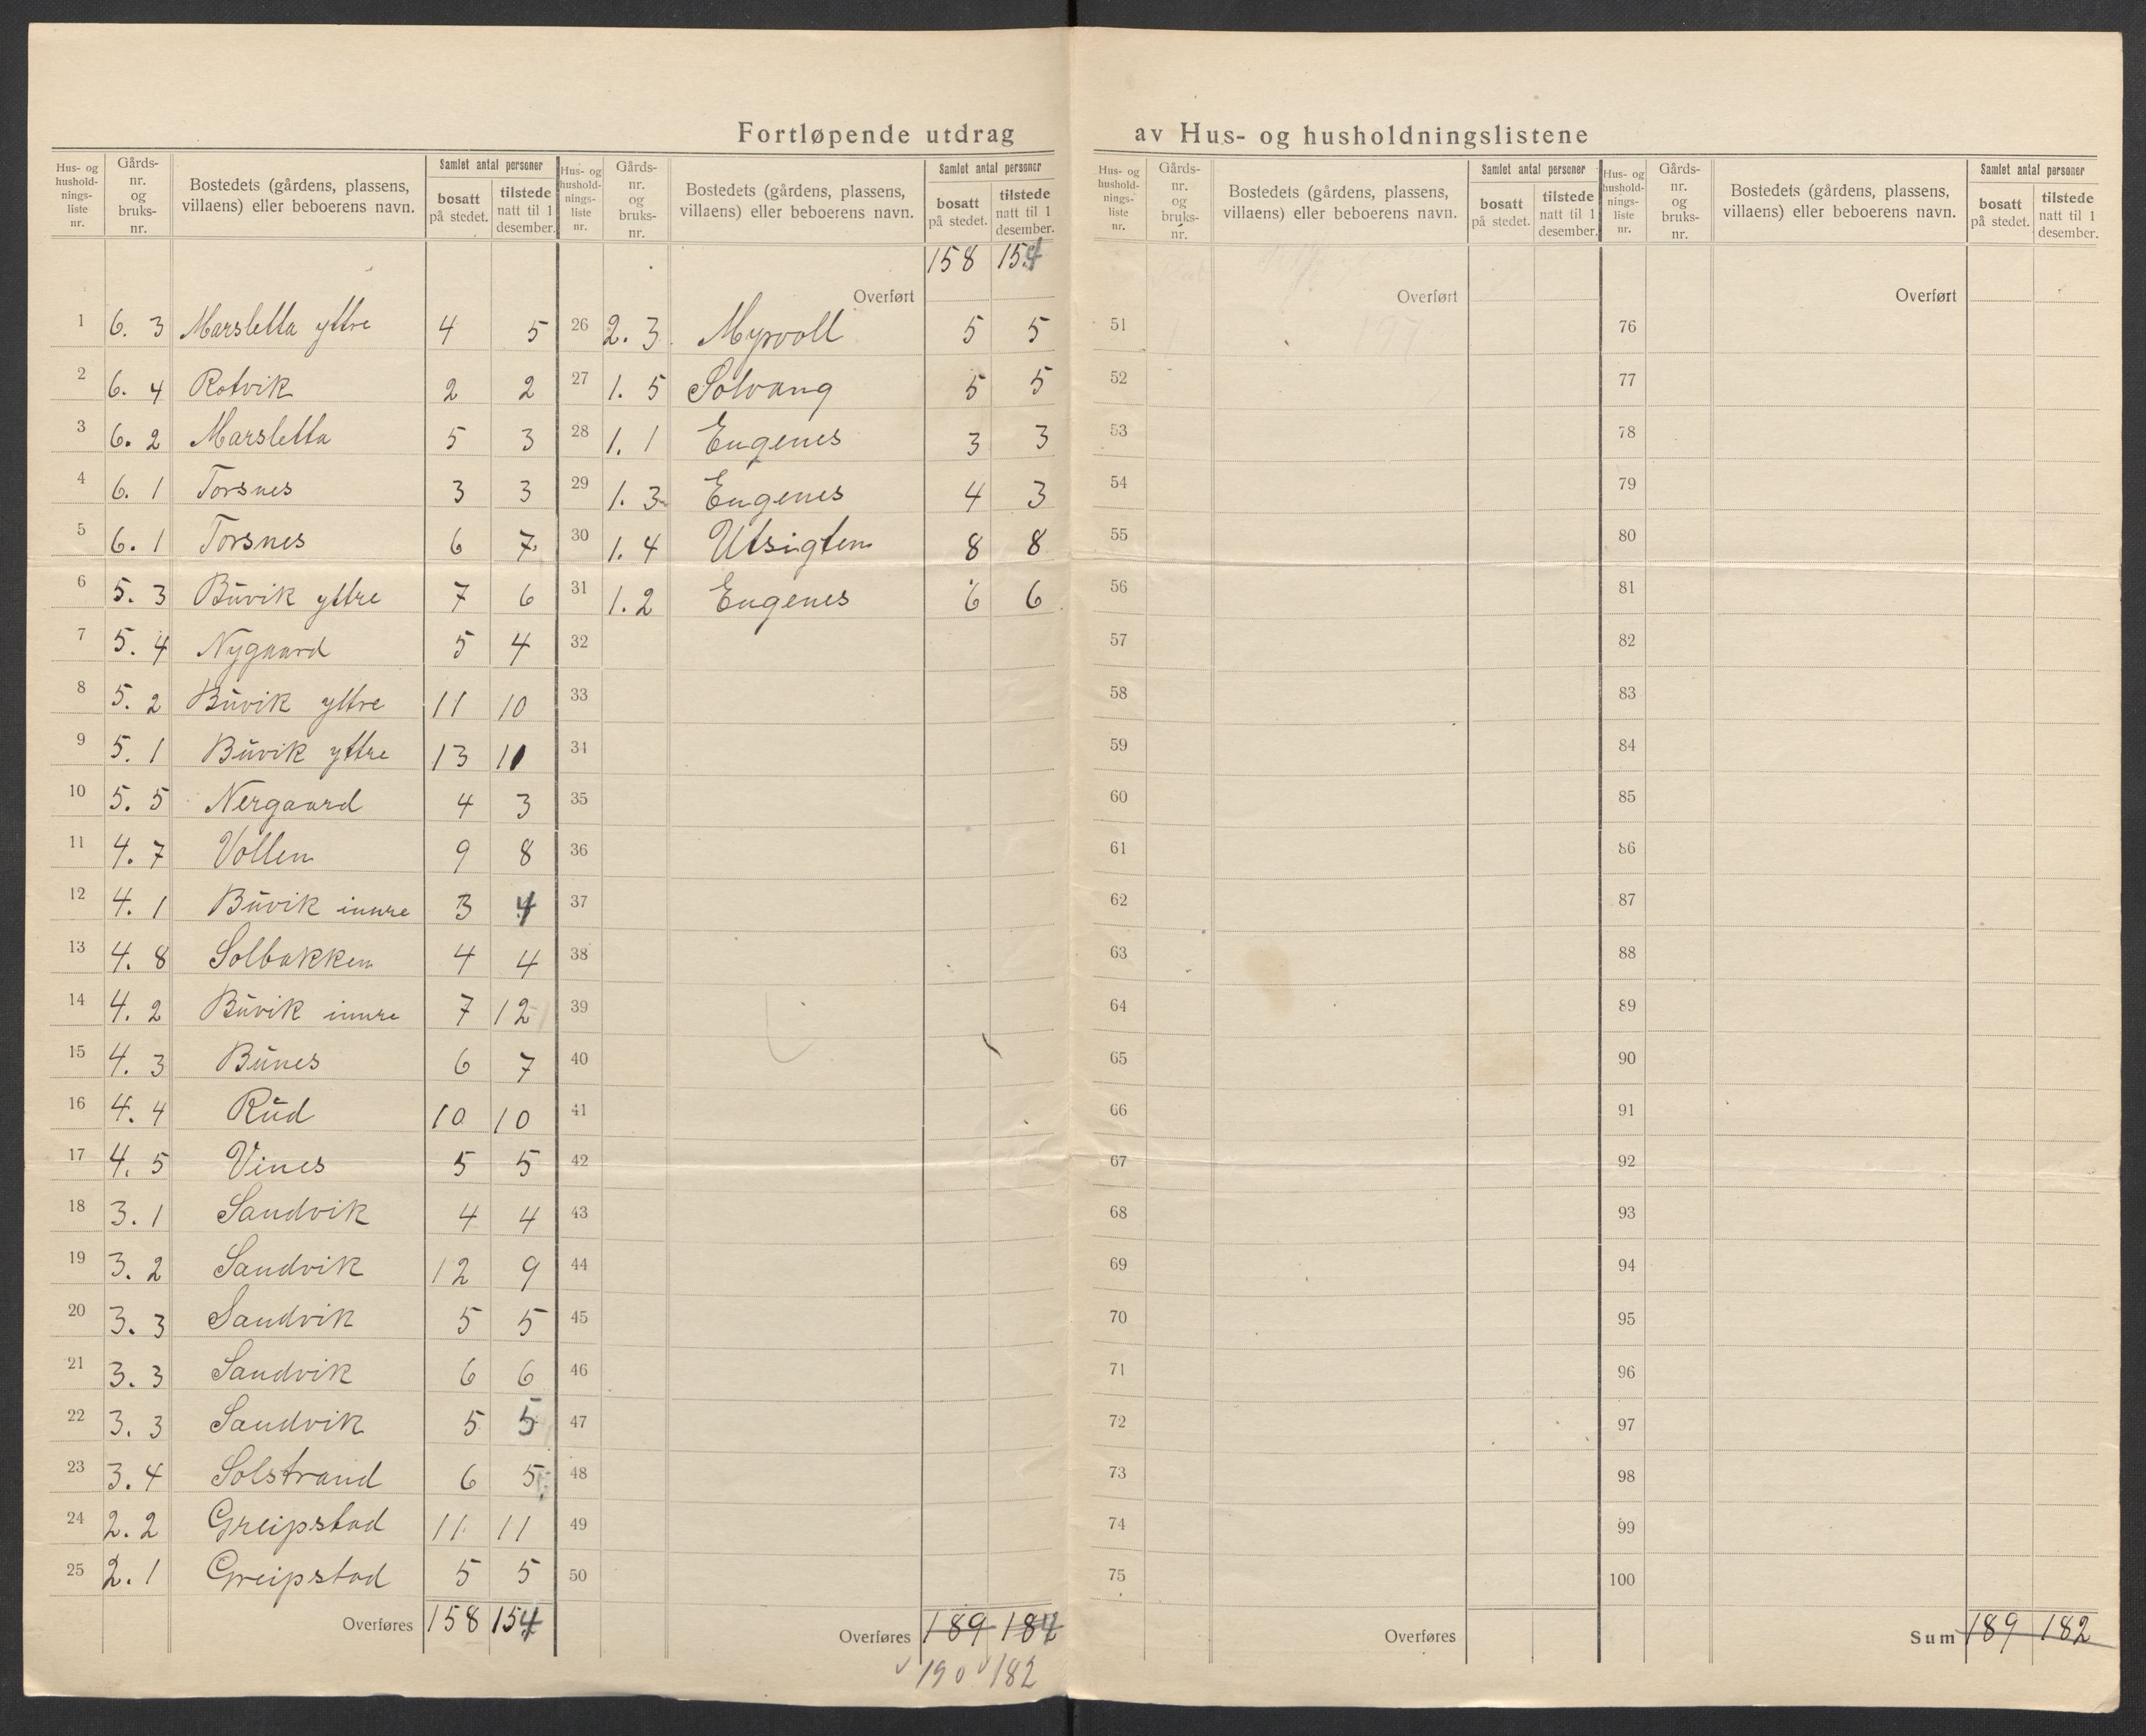 Fortløpende utdrag av Hus- og husholdningslistene
Hus- og husholdnings-liste nr. Gårds-nr. og bruks-nr. Bostedets (gårdens, plassens, villaens) eller beboerens navn. Samlet antal personer bosatt på stedet. tilstede natt til 1 desember.
1 6. 3 Marsletta yttre 4 5
2 6. 4 Rotvik 2 2
3 6. 2 Marsletta 5 3
4 6. 1 Torsnes 3 3
5 6. 1 Torsnes 6 7
6 5. 3 Buvik yttre 7 6
7 5. 4 Nygaard 5 4
8 5. 2 Buvik yttre 11 10
9 5. 1 Buvik yttre 13 11
10 5. 5 Nergaard 4 3
11 4. 7 Vollen 9 8
12 4. 1 Buvik innre 3 4
13 4. 8 Solbakken 4 4
14 4. 2 Buvik innre 7 12
15 4. 3 Bunes 6 7
16 4. 4 Rud 10 10
17 4. 5 Vines 5 5
18 3. 1 Sandvik 4 4
19 3. 2 Sandvik 12 9
20 3. 3 Sandvik 5 5
21 3. 3 Sandvik 6 6
22 3. 3 Sandvik 5 5
23 3. 4 Solstrand 6 5
24 2. 2 Greipstad 11 11
25 2. 1 Greipstad 5 5
Overføres 158 154
Hus- og husholdnings-liste nr. Gårds-nr. og bruks-nr. Bostedets (gårdens, plassens, villaens) eller beboerens navn. Samlet antal personer bosatt på stedet. tilstede natt til 1 desember.
158 154
Overført
26 2. 3. Myrvoll 5 5
27 1. 5 Solvang 5 5
28 1. 1 Eugenes 3 3
29 1. 3 Eugenes 4 3
30 1. 4 Utsigten 8 8
31 1. 2 Eugenes 6 6
32
33
34
35
36
37
38
39
40
41
42
43
44
45
46
47
48
49
50
Overføres 189 184
190 182
Hus- og husholdnings-liste nr. Gårds-nr. og bruks-nr. Bostedets (gårdens, plassens, villaens) eller beboerens navn. Samlet antal personer bosatt på stedet. tilstede natt til 1 desember.
Overført
51 197
52
53
54
55
56
57
58
59
60
61
62
63
64
65
66
67
68
69
70
71
72
73
74
75
Overføres
Hus- og husholdnings-liste nr. Gårds-nr. og bruks-nr. Bostedets (gårdens, plassens, villaens) eller beboerens navn. Samlet antal personer bosatt på stedet. tilstede natt til 1 desember.
Overført
76
77
78
79
80
81
82
83
84
85
86
87
88
89
90
91
92
93
94
95
96
97
98
99
100
Sum 189 182